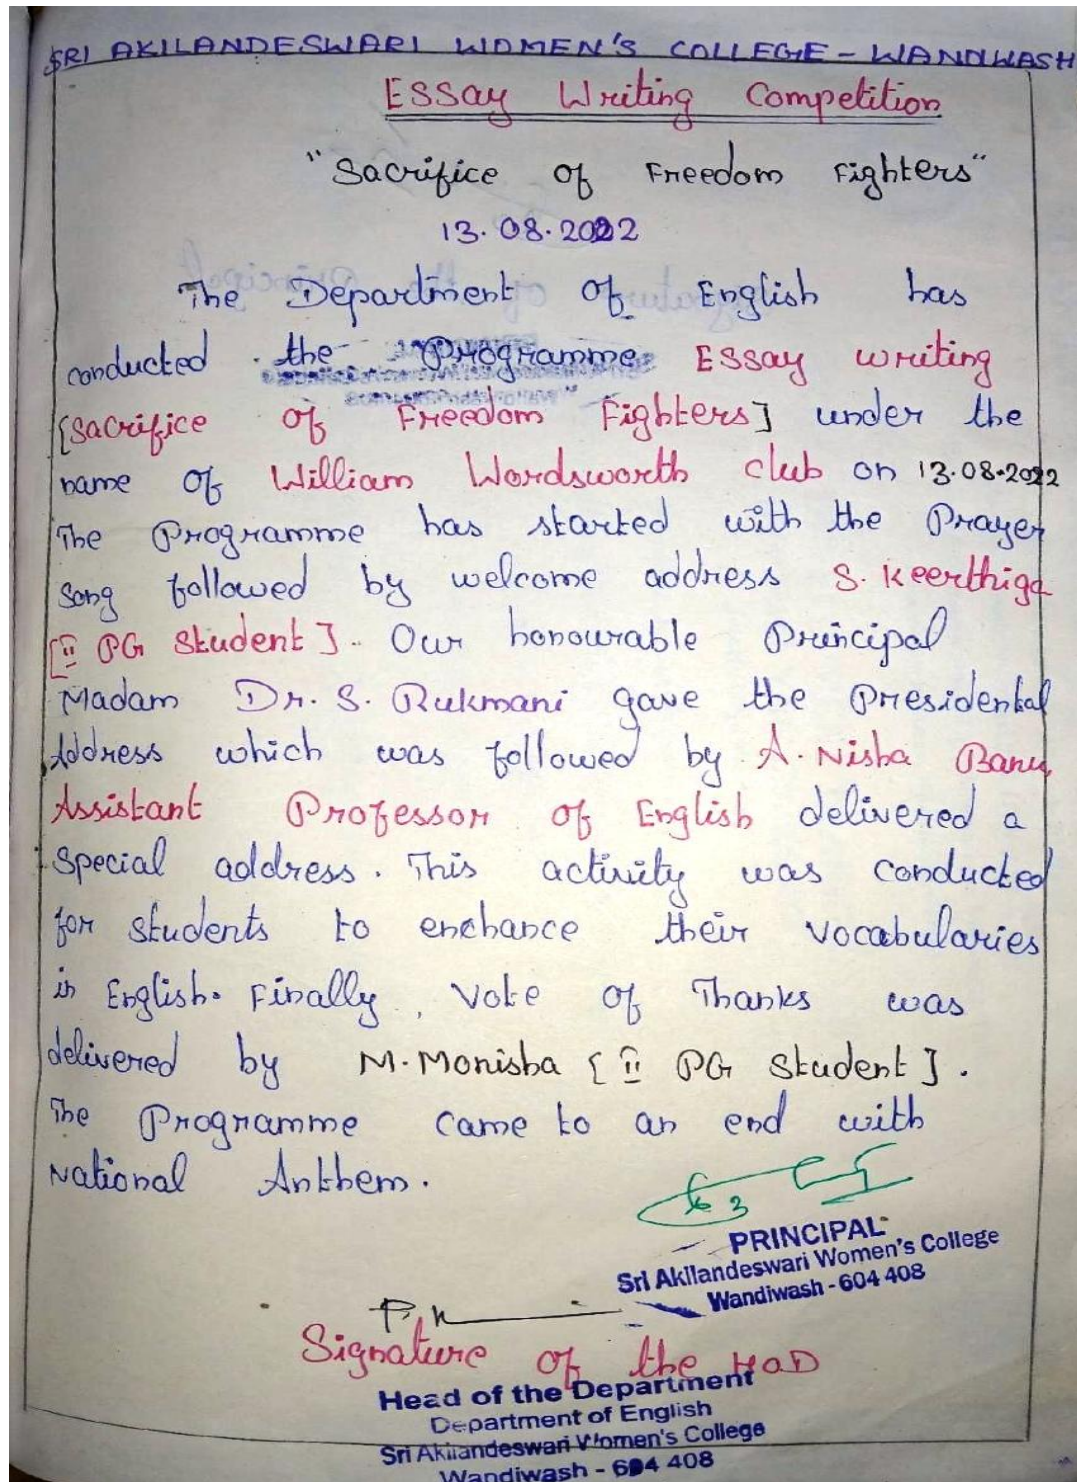 SRI AKILANDESWARI WOMEN'S COLLEGE - WANDIWASH
Essay Writing Competition
"Sacrifice of Freedom Fighters"
13.08.2022
The Department of English has
conducted the Programme Essay writing
[Sacrifice of Freedom Fighters] under the
name of William Wordsworth club on 13.08.2022
The Programme has started with the Prayer
song followed by welcome address S. Keerthiga
[II PG Student]. Our honourable Principal
Madam Dr. S. Rukmani gave the Presidental
Address which was followed by A. Nisha Banu,
Assistant Professor of English delivered a
Special address. This activity was conducted
for students to enchance their vocabularies
in English. Finally, Vote of Thanks was
delivered by M. Monisha [II PG Student].
The Programme came to an end with
National Anthem.
PRINCIPAL
Sri Akilandeswari Women's College
Wandiwash - 604 408
Signature of the HOD
Head of the Department
Department of English
Sri Akilandeswari Women's College
Wandiwash - 604 408